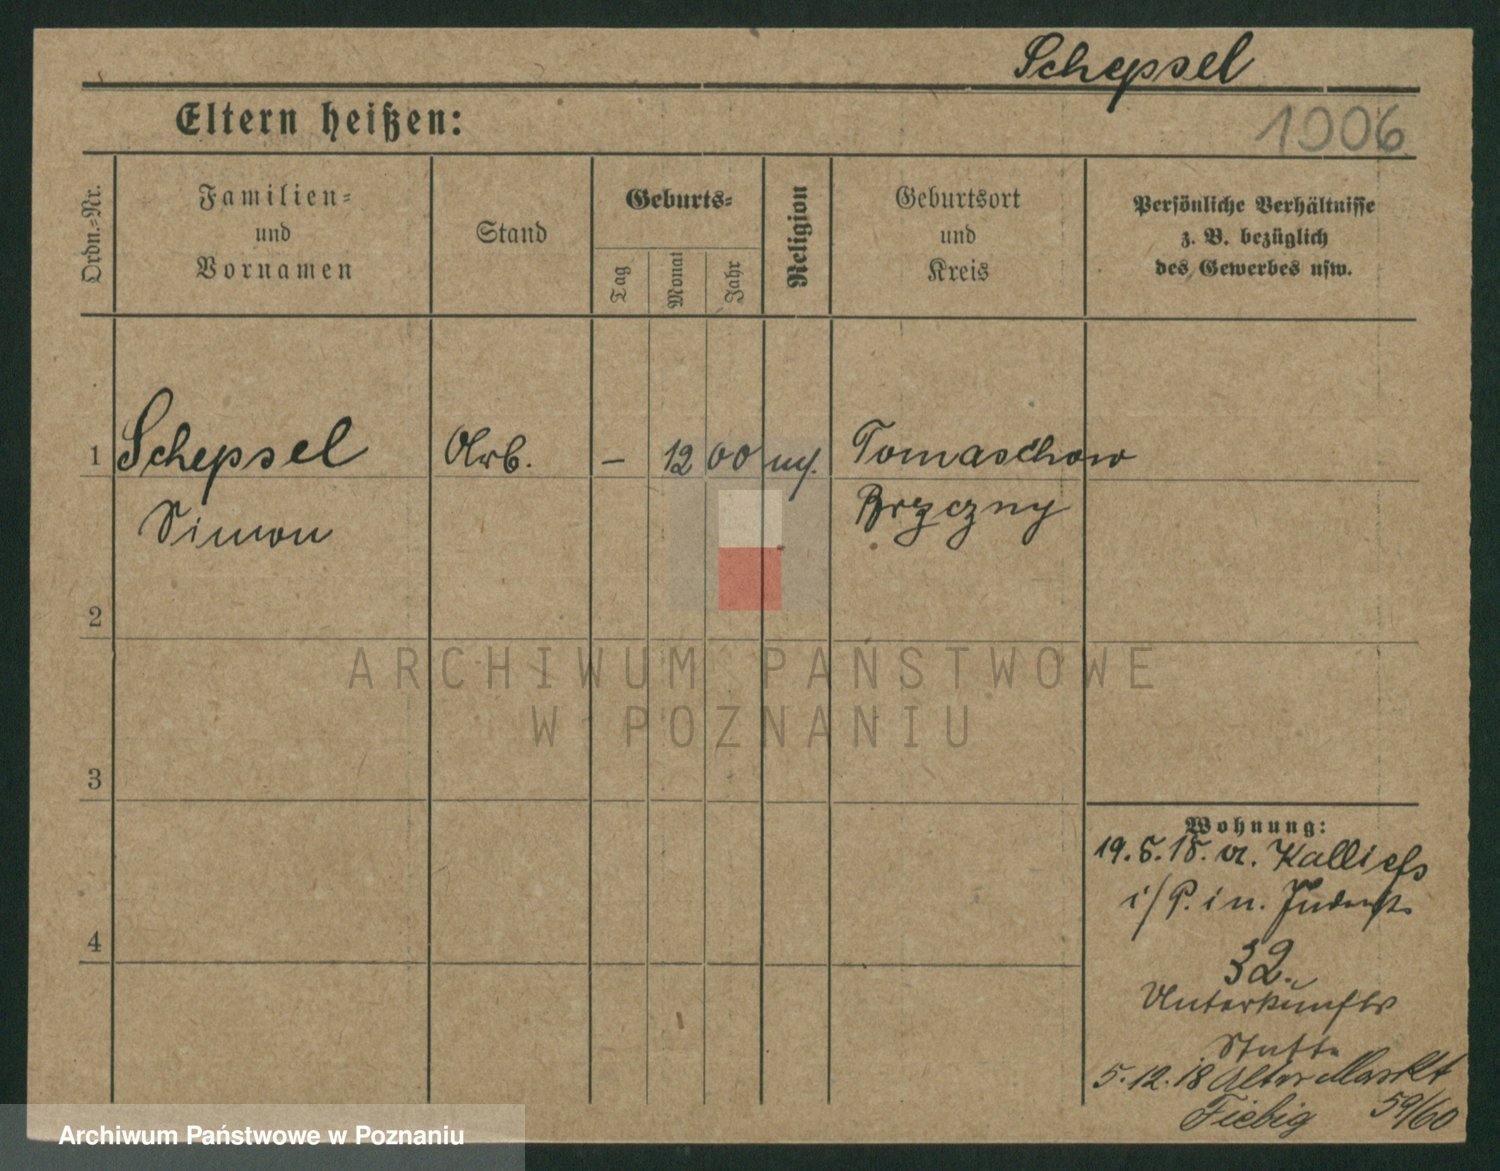 Schepsel
Eltern heißen:
1906
Ordn.-Nr.
Familien-
und
Vornamen
Stand
Geburts-
Tag
Monat
Jahr
Religion
Geburtsort
und
Kreis
Persönliche Verhältnisse
z. B. bezüglich
des Gewerbes usw.
1 Schepsel Arb. – 12 00 Tomaschow
Simon Brzczny
2
ARCHIWUM PAŃSTWOWE
W POZNANIU
3
Wohnung:
19.5.18. v. Kallies
i/P. in. Judenstr.
4
32.
Unterkunfts
Stätte
5.12.18 Alter Markt
Fiebig 59/60
Archiwum Państwowe w Poznaniu